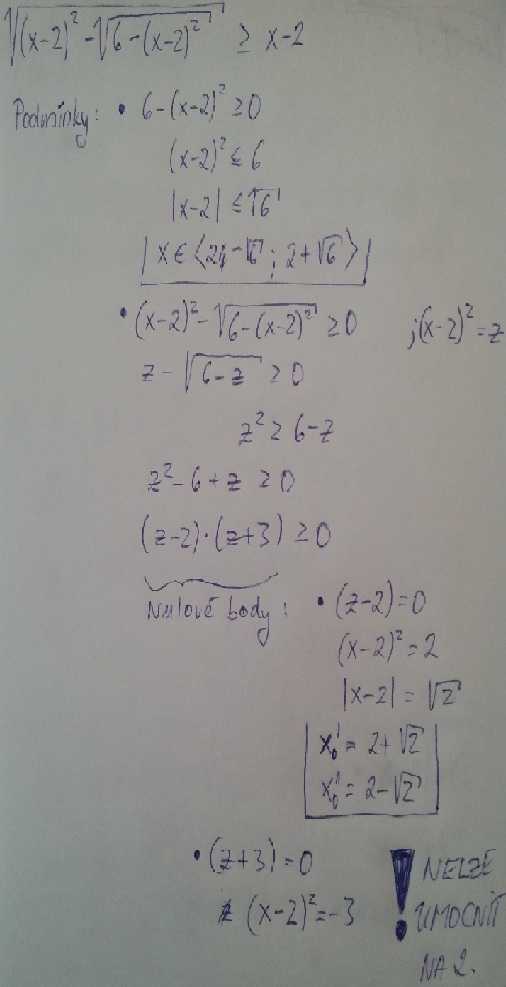 √((x-2)² - √(6-(x-2)²)) ≥ x-2
Podmínky: • 6-(x-2)² ≥ 0
(x-2)² ≤ 6
|x-2| ≤ √6
x ∈ ⟨2-√6 ; 2+√6⟩
• (x-2)² - √(6-(x-2)²) ≥ 0 ; (x-2)² = z
z - √(6-z) ≥ 0
z² ≥ 6-z
z² - 6 + z ≥ 0
(z-2)·(z+3) ≥ 0
Nulové body: • (z-2) = 0
(x-2)² = 2
|x-2| = √2
x₀' = 2+√2
x₀'' = 2-√2
• (z+3) = 0 ! NELZE
(x-2)² = -3 UMOCNIT
NA 2.